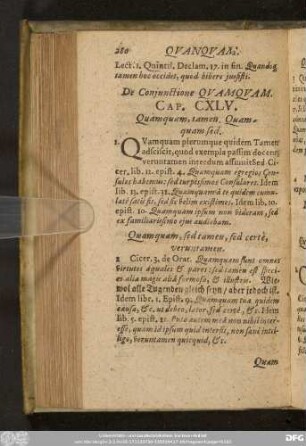 280 QVANQVAM.
Lect. 1. Quintil. Declam. 17. in fin. Quandoq
tamen hoc occidet, quod bibere jussisti.
De Conjunctione QVAMQVAM.
CAP. CXLV.
Quamquam, tamen, Quam-
quam sed.
1. QVamquam plerumque quidem Tamen
adsciscit, quod exempla passim docent
veruntamen interdum assumit Sed Ci-
cer, lib. 11. epist. 4. Quamquam egregios Con-
sules habemus: sed turpissimos Consulares: Idem
lib. 13. epist. 31. Quamquam
te satis sit, sed sic velim existimes. Idem lib. 10.
epist. 10. Quamquam ipsum non videram, sed
ex familiarissimo ejus audiebam.
Quamquam, sed tamen, sed certè,
veruntamen.
2 Cicer. 3. de Orat. Quamquam sunt omnes
virtutes æquales & pares: sed tamen est speci-
es alia magis aliâ formosa, & illustris. Wie-
wol alle Tugenden gleich seyn / aber jedoch ist.
Idem libr. 1. Epist. 9. Quamquam tua quidem
causa, te
lib. 5. epist. 21.
esse, quam id ipsum quid intersit, non sanè intelli-
go, veruntamen quicquid, &c.
Quam